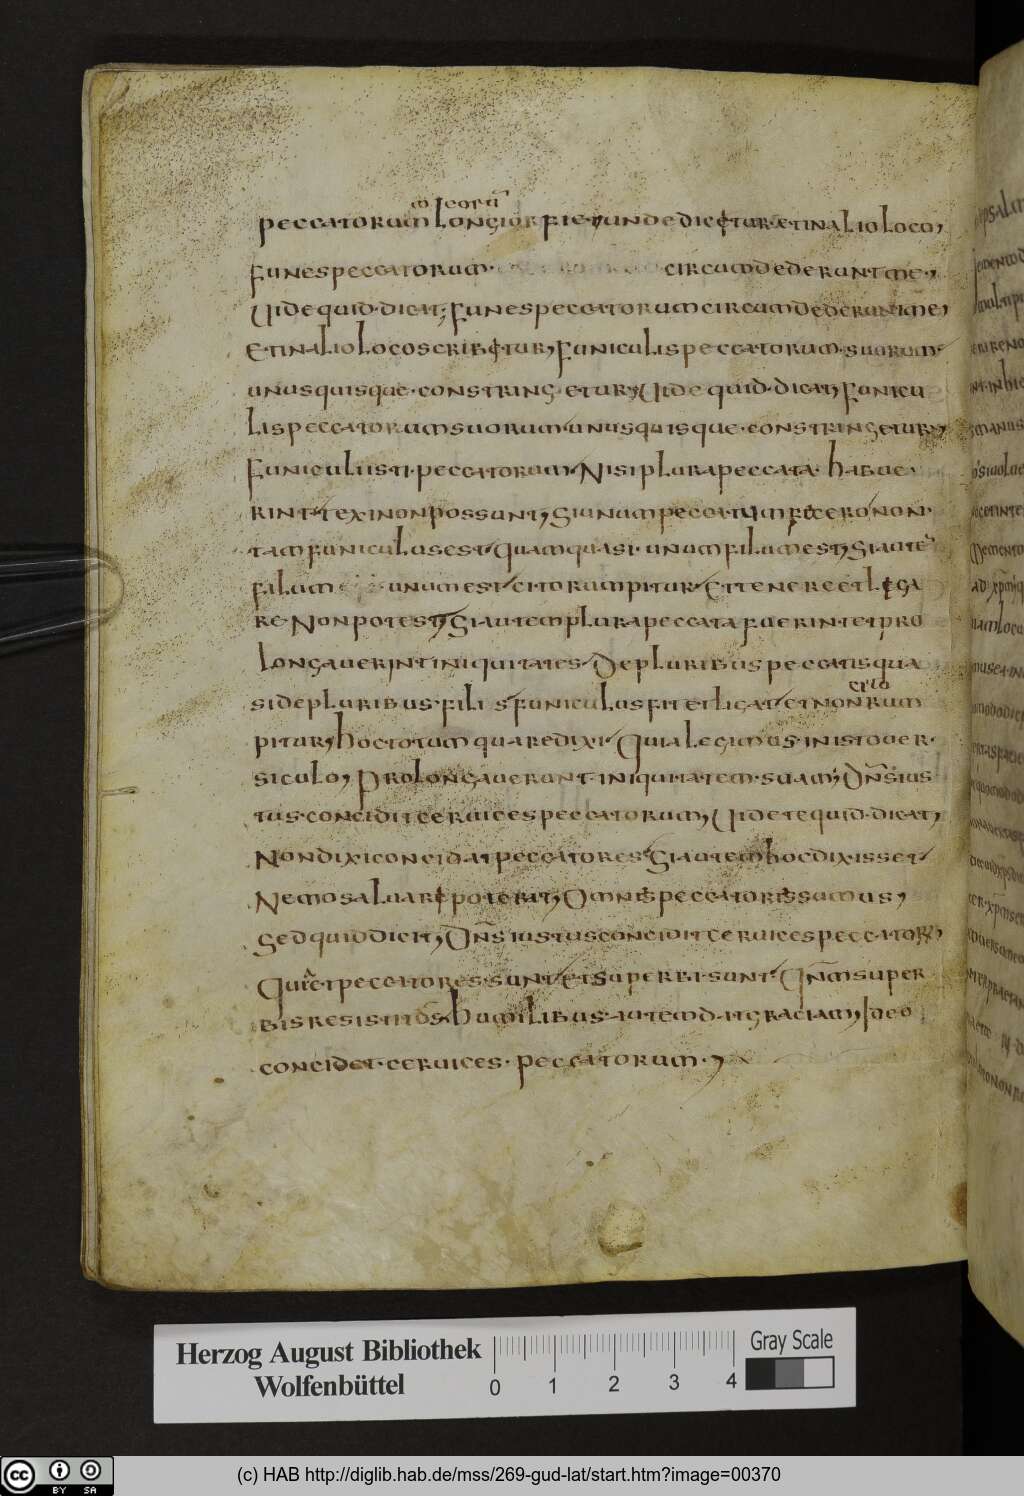 m eorū
peccatorum longior fiet, unde dicetur· et in alio loco,
funes peccatorum· circumdederunt me·,
Uide quid· dicat; funes peccatorum circumdederunt me,
Et in alio loco scribetur, funiculis peccatorum· suorum·
unusquisque· constringetur, Uide quid· dicat, funicu
lis peccatorum suorum unusquisque· constringetur,
funiculi isti· peccatorum Nisi plura peccata· habue·
rint texi non possunt, Si unum peccatum fecero non·
tam funiculus est Quam quasi· unum filum est, Si autē
filum unum est cito rumpitur Et tenere et lega
re· Non potest, Si autem plura peccata fuerint et pro
longauerint iniquitates De pluribus peccatis qua
si de pluribus· fili s funiculus fit et ligat et non rum
cito
pitur, hoc totum quare dixi· Quia legimus· in isto uer·
siculo, Prolongauerunt· iniquitatem· suam, Dns̄ ius
tus· concidit ceruices peccatorum, Uidete quid· dicat,
Non dixi concidat peccatores Si autem hoc dixisset
Nemo saluare poterat, Omnes peccatores sumus,
Sed quid dicit, Dns̄ iustus concidit ceruices peccator
Qui et peccatores sunt et superbi· sunt· Qnm̄ super
bis resistit ds̄ humilibus· autem dat graciam, Ideo
concidet· ceruices· peccatorum·,
Herzog August Bibliothek
Wolfenbüttel
0 1 2 3 4
Gray Scale
cc BY SA
(c) HAB http://diglib.hab.de/mss/269-gud-lat/start.htm?image=00370